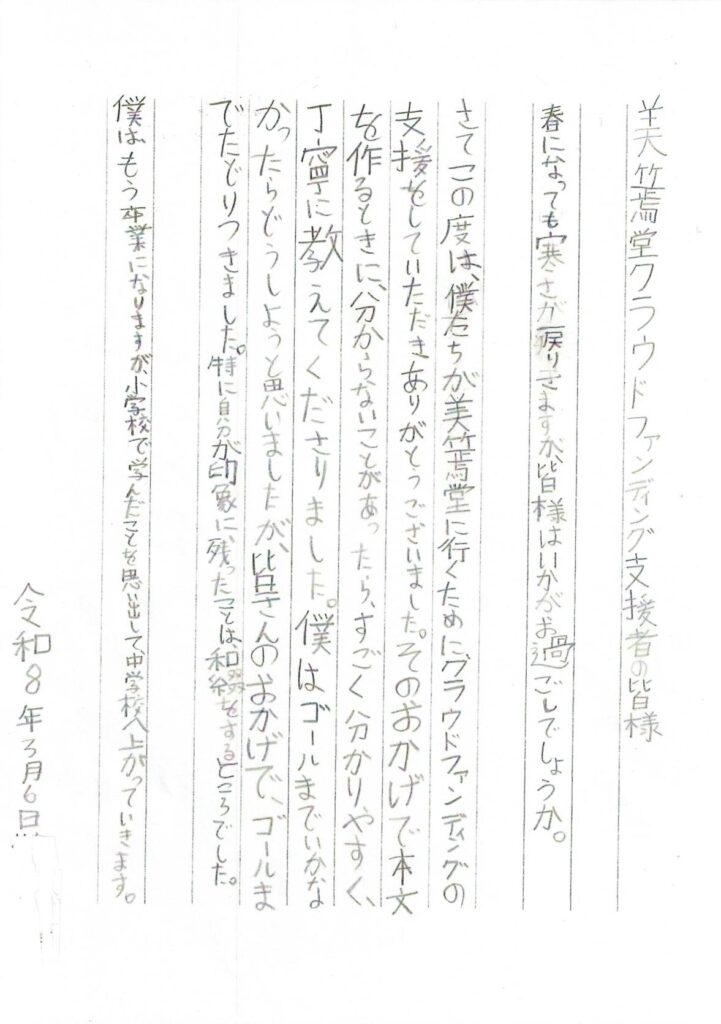 美篶堂クラウドファンディング支援者の皆様
春になっても寒さが戻りきますが、皆様はいかがお過ごしでしょうか。
さてこの度は、僕たちが美篶堂に行くために、グラウドファンディングの
支援をしていただきありがとうございました。そのおかげで本文
を作るときに、分からないことがあったら、すごく分かりやすく、
丁寧に教えてくださりました。僕はゴールまでいかな
かったらどうしようと思いましたが、皆さんのおかげで、ゴールま
でたどりつきました。特に自分が印象に、残ったことは、和綴をするところでした。
僕はもう卒業になりますが、小学校で学んだことを思い出して、中学校へ上がっていきます。
令和8年3月6日